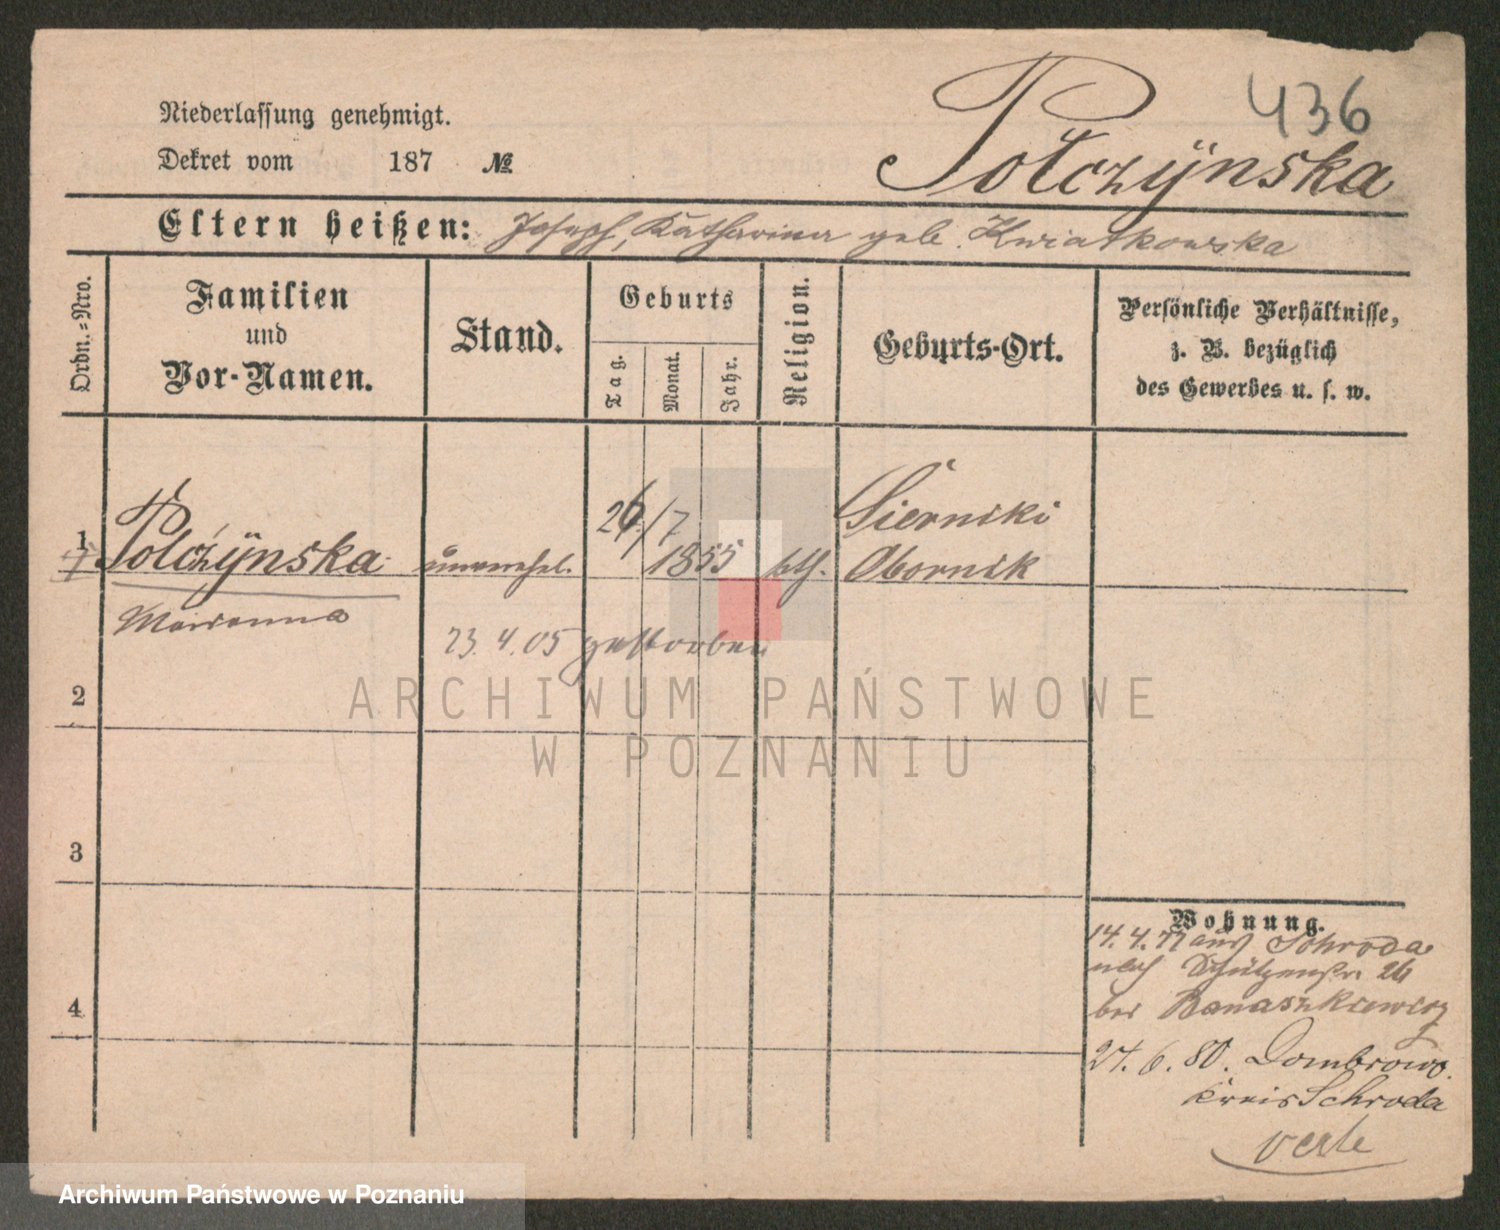 436
Niederlassung genehmigt.
Dekret vom 187 №
Połczÿnska
Eltern heißen: Joseph, Katharina geb. Kwiatkowska
Ordn.-Nro.
Familien
und
Vor-Namen.
Stand.
Geburts
Tag.
Monat.
Jahr.
Religion.
Geburts-Ort.
Persönliche Verhältnisse,
z. B. bezüglich
des Gewerbes u. s. w.
1
Połczÿnska
Marianna
unverehel.
26/7
1855
kth.
Sierniki
Obornik
23.4.05 gestorben
2
3
4
Wohnung.
14.4.77 aus Schroda
nach Schützenstr. 26
bei Banaszkiewicz
27.6.80. Dombrowo
Kreis Schroda
verte
ARCHIWUM PAŃSTWOWE
W POZNANIU
Archiwum Państwowe w Poznaniu